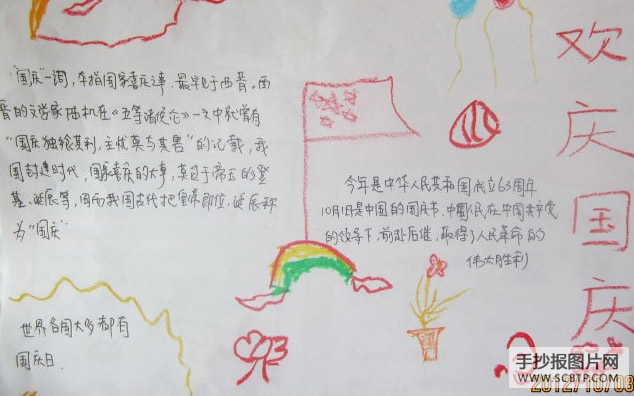 "国庆"一词,本指国家喜庆之事、最早见于西晋。西
晋的文学家陆机在《五等诸侯论》一文中就曾有
"国庆独飨其利,主忧莫与其害"的记载,我
国封建时代、国家喜庆的大事,莫过于帝王的登
基、诞辰等,因而我国古代把皇帝即位、诞辰称
为"国庆"
世界各国大多都有
国庆日.
今年是中华人民共和国成立63周年
10月1日是中国的国庆节.中国人民在中国共产党
的领导下,前赴后继,取得了人民革命的
伟大胜利
欢
庆
国
庆
手抄报图片网
WWW.SCBTP.COM
2012/10/03